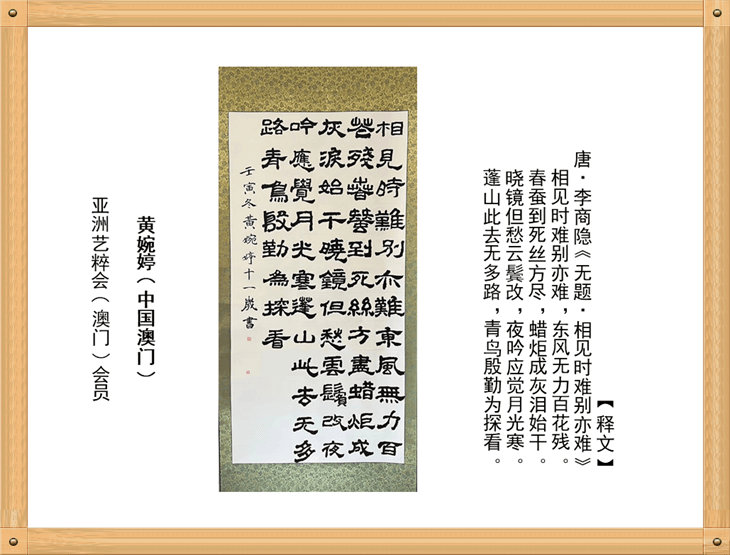 【释文】
唐·李商隐《无题·相见时难别亦难》
相见时难别亦难，东风无力百花残。
春蚕到死丝方尽，蜡炬成灰泪始干。
晓镜但愁云鬓改，夜吟应觉月光寒。
蓬山此去无多路，青鸟殷勤为探看。
相見時難别亦難東風無力百
花殘春蠶到死絲方盡蜡炬成
灰淚始干曉鏡但愁雲鬢改夜
吟應覺月光寒蓬山此去无多
路青鳥殷勤為探看
壬寅冬黄婉婷十一嵗書
黄婉婷（中国澳门）
亚洲艺粹会（澳门）会员